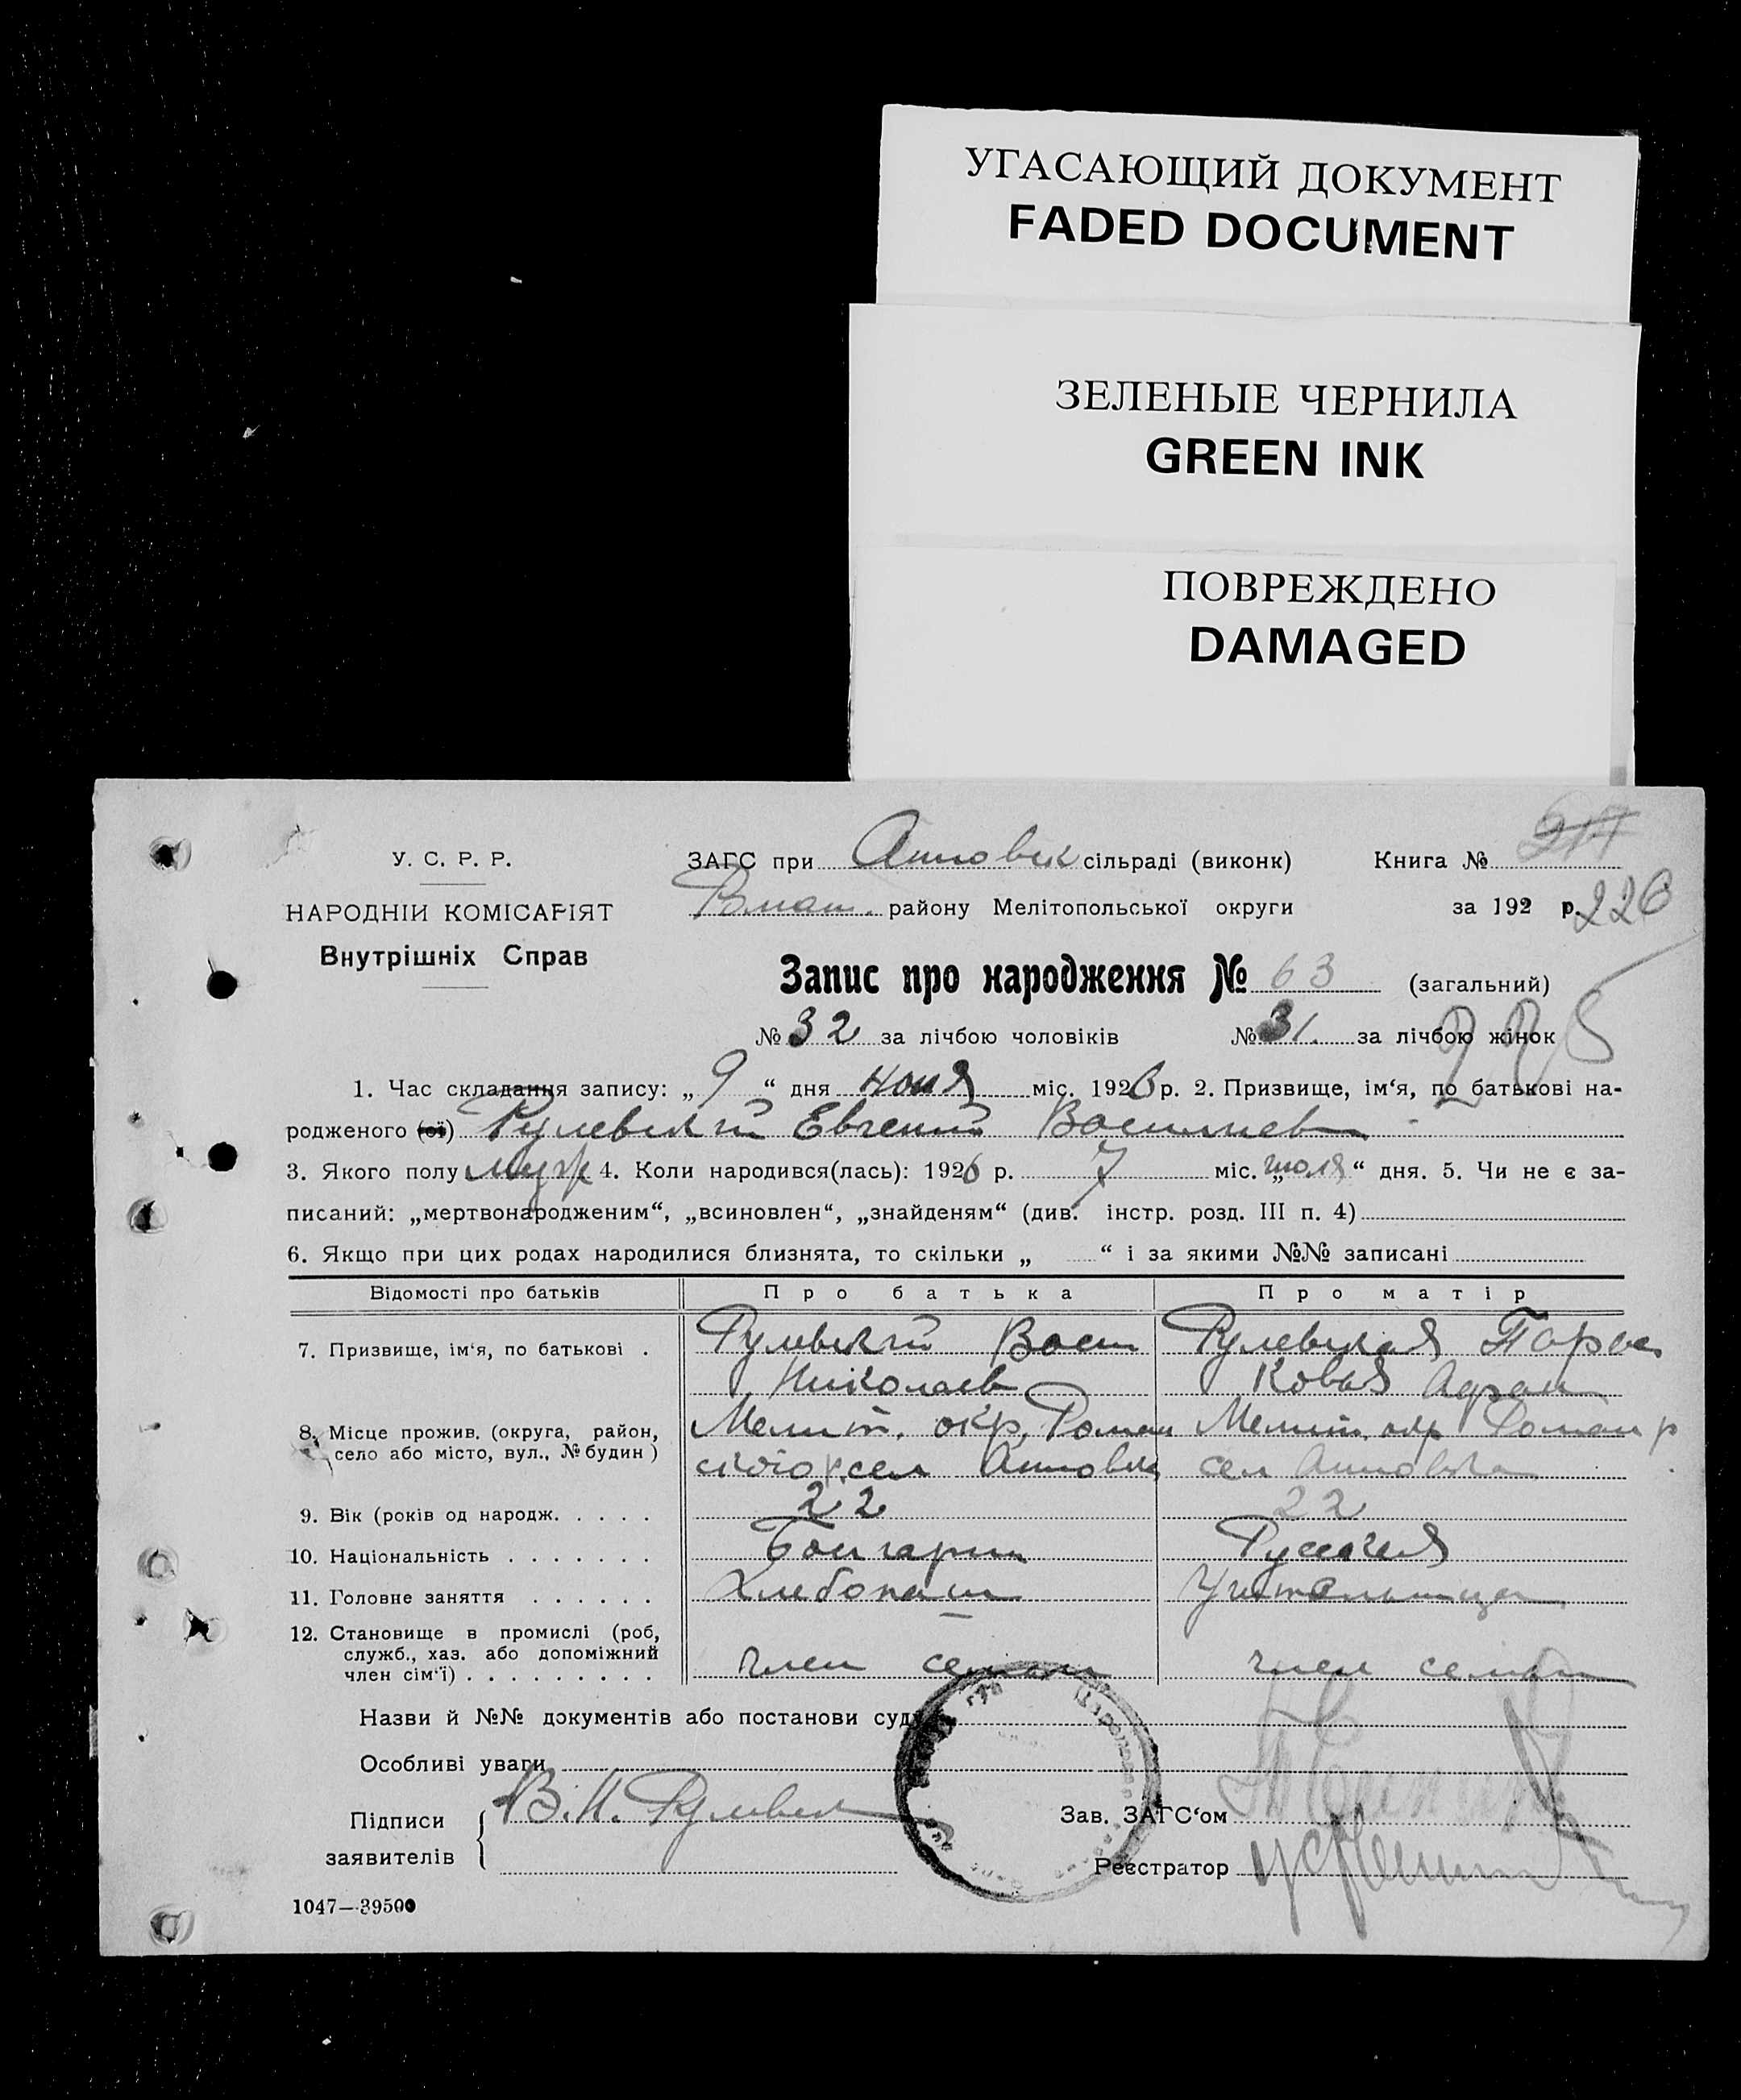 УГАСАЮЩИЙ ДОКУМЕНТ
FADED DOCUMENT
ЗЕЛЕНЫЕ ЧЕРНИЛА
GREEN INK
ПОВРЕЖДЕНО
DAMAGED
У. С. Р. Р.
НАРОДНІЙ КОМІСАРІЯТ
Внутрішніх Справ
ЗАГС при Анновск сільраді (виконк) Книга № 217
Роман. району Мелітопольської округи за 192 р. 226
Запис про народження № 63 (загальний)
№ 32 за лічбою чоловіків № 31. за лічбою жінок
225
1. Час складання запису: „ 9 “ дня міс. 1926 р. 2. Призвище, ім‘я, по батькові на-
родженого (ої) Рулевский Евгений Васильев
3. Якого полу муж 4. Коли народився(лась): 1926 р. 7 міс. „июля“ дня. 5. Чи не є за-
писаний: „мертвонародженим“, „всиновлен“, „знайденям“ (див. інстр. розд. III п. 4)
6. Якщо при цих родах народилися близнята, то скільки „ “ і за якими №№ записані
Відомості про батьків Про батька Про матір
7. Призвище, ім‘я, по батькові . Рулевский Васил Рулевская
Николаев
8. Місце прожив. (округа, район, село або місто, вул., № будин) Мелит. окр. Роман Мелит. окр Роман р
сел Анновка сел Анновка
9. Вік (років од народж. . . . . 22 22
10. Національність . . . . . . . Болгарин Русская
11. Головне заняття . . . . . . Хлебопаш Учительница
12. Становище в промислі (роб,
служб., хаз. або допоміжний
член сім‘ї) . . . . . . . . . член семьи член семьи
Назви й №№ документів або постанови суду
Особливі уваги
Підписи
заявителів
В. Н. Рулевск
Зав. ЗАГС‘ом
Реєстратор
1047—39500